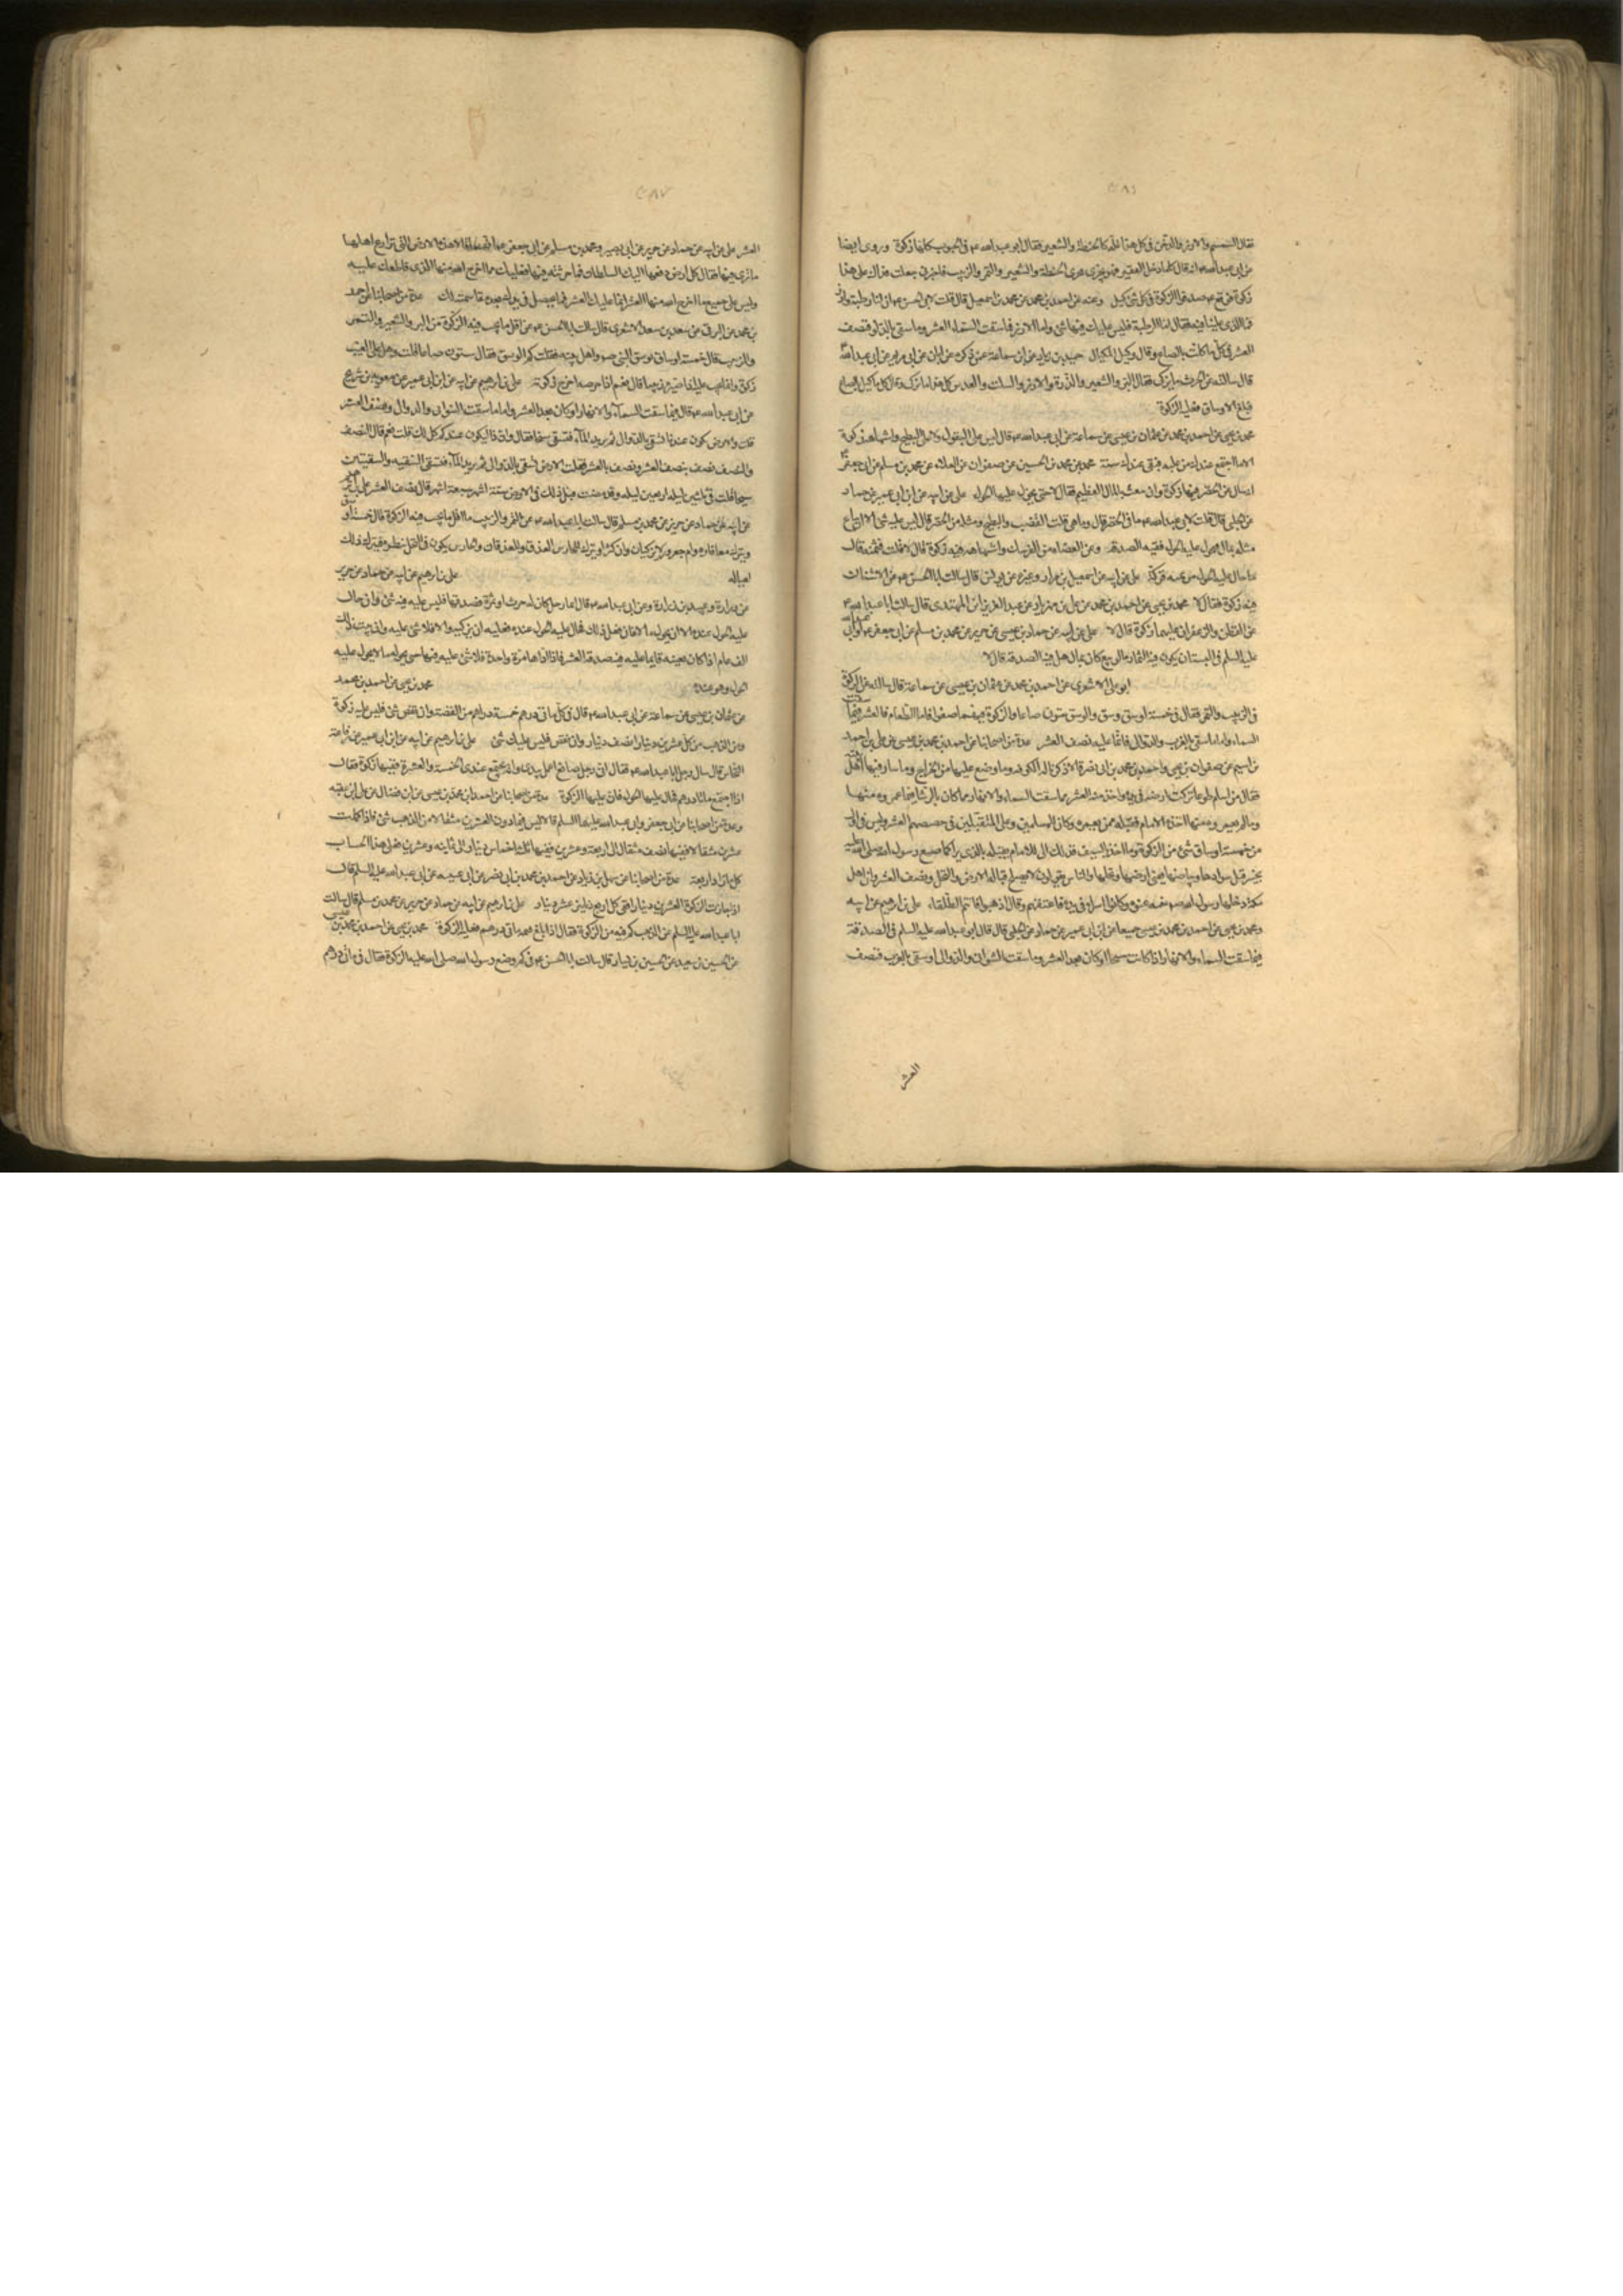 فقال السمسم والارز والدخن وكل هذا غلة كالحنطة والشعير فقال ابو عبد الله ع في الحبوب كلها زكوة وروى ايضا
عن ابي عبد الله ع انه قال كلما دخل القفيز فهو يجري مجرى الحنطة والشعير والتمر والزبيب
زكوة الزكوة في كل شئ كيل وعنه عن احمد بن محمد عن محمد بن اسمعيل قال قلت لابي الحسن ع ان لنا رطبة وارزا
فما الذي علينا فيها فقال اما الرطبة فليس عليك فيها شئ واما الارز فما سقت السماء العشر وما سقي بالدلو فنصف
العشر في كل ما كلت بالصاع او قال وكيل بالمكيال حميد بن زياد عن ابن سماعة عمن ذكره عن ابان عن ابي مريم عن ابي عبد الله
قال سالته عن الحرث ما يزكى فقال البر والشعير والذرة والارز والسلت والعدس كل هذا مما يزكى وقال كل ما كيل بالصاع
فبلغ الاوساق فعليه الزكوة
محمد بن يحيى عن احمد بن محمد عن عثمان بن عيسى عن سماعة عن ابي عبد الله ع قال ليس على البقول ولا على البطيخ واشباهه زكوة
الا ما اجتمع عندك من غلته فبقي عندك سنة محمد عن محمد بن الحسين عن صفوان عن العلاء عن محمد بن مسلم عن ابي جعفر
انه سئل عن الخضر فيها زكوة وان بيعت بالمال العظيم فقال لا حتى يحول عليها الحول علي عن ابيه عن ابن ابي عمير عن حماد
عن الحلبي قال قلت لابي عبد الله ع ما في الخضر قال وما هي قلت القضب والبطيخ ومثله من الخضر قال ليس عليه شئ الا ان يباع
مثله بمال فيحول عليه الحول ففيه الصدقة وعن العضاه من الفرسك واشباهه فيه زكوة قال لا قلت فثمنه قال
ما حال عليه الحول من ثمنه فزكه علي عن ابيه عن اسمعيل بن مرار وغيره عن يونس قال سالت ابا الحسن ع عن الاشنان
فيه زكوة فقال لا محمد بن يحيى عن احمد بن محمد عن علي بن مهزيار عن عبد العزيز بن المهتدي قال سالت ابا عبد الله ع
عن القطن والزعفران عليهما زكوة قال لا علي عن ابيه عن حماد بن عيسى عن حريز عن محمد بن مسلم عن ابي جعفر
عليه السلم في البستان يكون فيه الثمار ما لو بيع كان بمال هل فيه الصدقة قال لا
ابو علي الاشعري عن احمد بن محمد عن عثمان بن عيسى عن سماعة قال سالته عن الزكوة
في الزبيب والتمر فقال في خمسة اوسق وسق والوسق ستون صاعا والزكوة فيهما سواء فاما الطعام فالعشر فيما
السماء واما ما سقي بالغرب والدوالي فانما عليه نصف العشر عدة من اصحابنا عن احمد بن محمد بن عيسى عن علي بن احمد
بن اشيم عن صفوان بن يحيى واحمد بن محمد بن ابي نصر قالا ذكرنا له الكوفة وما وضع عليها من الخراج وما سار فيها اهل
فقال من اسلم طوعا تركت ارضه في يده واخذ منه العشر مما سقت السماء والانهار وما كان بالرشا فيما عمروه منها
وما لم يعمروه منها اخذه الامام فقبله ممن يعمره وكان للمسلمين وعلى المتقبلين في حصصهم العشر وليس في اقل
من خمسة اوساق شئ من الزكوة وما اخذ بالسيف فذلك الى الامام يقبله بالذي يرى كما صنع رسول الله صلى الله عليه
بخيبر قبل سوادها وبياضها يعني ارضها ونخلها والناس يقولون لا تصلح قبالة الارض والنخل ونصف العشر وان اهل
مكة دخلها رسول الله ص عنوة وكانوا اسراء في يده فاعتقهم وقال اذهبوا فانتم الطلقاء علي بن ابرهيم عن ابيه
ومحمد بن يحيى عن احمد بن محمد بن عيسى جميعا عن ابن ابي عمير عن حماد عن الحلبي قال قال ابو عبد الله عليه السلم في الصدقة
فيما سقت السماء والانهار اذا كانت سيحا او كان بعلا العشر وما سقت السواني والدوالي او سقي بالغرب فنصف
العشر
العشر علي عن ابيه عن حماد عن حريز عن ابي بصير ومحمد بن مسلم عن ابي جعفر ع انهما قالا له هذه الارض التي يزارع اهلها
ما ترى فيها فقال كل ارض دفعها اليك السلطان فما حرثته فيها فعليك مما اخرج الله منها الذي قاطعك عليه
وليس على جميع ما اخرج الله منها العشر انما عليك العشر فيما يحصل في يدك بعد مقاسمته لك عدة من اصحابنا عن احمد
بن محمد عن البرقي عن سعد بن سعد الاشعري قال سالت ابا الحسن ع عن اقل ما يجب فيه الزكوة من البر والشعير والتمر
والزبيب فقال خمسة اوساق بوسق النبي ص فقلت كم الوسق فقال ستون صاعا قلت وهل على العنب
زكوة او انما يجب عليه اذا صيره زبيبا قال نعم اذا خرصه اخرج زكوته علي بن ابرهيم عن ابيه عن ابن ابي عمير عن معوية بن شريح
عن ابي عبد الله ع قال فيما سقت السماء والانهار او كان بعلا العشر واما ما سقت السواني والدوالي فنصف العشر
قلت فالارض تكون عندنا تسقى بالدوالي ثم يزيد الماء فتسقى سيحا فقال وان ذا ليكون عندكم كذلك قلت نعم قال النصف
والنصف نصف بنصف العشر ونصف بالعشر فقلت الارض تسقى بالدوالي ثم يزيد الماء فتسقى السقية والسقيتين
سيحا قلت في ثلثين ليلة اربعين ليلة وقد مضت قبل ذلك في الارض ستة اشهر سبعة اشهر قال نصف العشر علي بن ابرهيم
عن ابيه عن حماد عن حريز عن محمد بن مسلم قال سالت ابا عبد الله ع عن التمر والزبيب ما اقل ما يجب فيه الزكوة قال خمسة اوسق
ويترك معافاره وام جعرور لا يزكيان وان كثرا ويترك للحارس العذق والعذقان والحارس يكون في النخل ينظره فيترك ذلك
لعياله
علي بن ابرهيم عن ابيه عن حماد عن حريز
عن زرارة وعبيد بن زرارة عن ابي عبد الله ع قال ايما رجل كان له حرث او ثمرة فصدقها فليس عليه فيه شئ وان حال
عليه الحول عنده الا ان يحوله مالا فان فعل ذلك فحال عليه الحول عنده فعليه ان يزكيه والا فلا شئ عليه وان ثبت ذلك
الف عام اذا كان بعينه فانما عليه فيه صدقة العشر فاذا اداها مرة واحدة فلا شئ عليه فيها حتى يحوله مالا ويحول عليه
الحول وهو عنده
محمد بن يحيى عن احمد بن محمد
عن عثمان بن عيسى عن سماعة عن ابي عبد الله ع قال في كل ماتي درهم خمسة دراهم من الفضة وان نقص شئ فليس عليه زكوة
ومن الذهب من كل عشرين دينارا نصف دينار وان نقص فليس عليك شئ علي بن ابرهيم عن ابيه عن ابن ابي عمير عن رفاعة
النخاس قال سال رجل ابا عبد الله ع فقال اني رجل صائغ اعمل بيدي وانه يجتمع عندي الخمسة والعشرة ففيها زكوة فقال
اذا اجتمع مائتا درهم فحال عليها الحول فان عليها الزكوة عدة من اصحابنا عن احمد بن محمد بن عيسى عن ابن فضال عن علي بن عقبة
وعدة من اصحابنا عن ابي جعفر وابي عبد الله عليهما السلم قالا ليس فيما دون العشرين مثقالا من الذهب شئ فاذا كملت
عشرين مثقالا ففيها نصف مثقال الى اربعة وعشرين ففيها ثلثة اخماس دينار الى ثمانية وعشرين فعلى هذا الحساب
كلما زاد اربعة عدة من اصحابنا عن سهل بن زياد عن احمد بن محمد بن ابي نصر عن ابي عيينه عن ابي عبد الله عليه السلم قال
اذا جازت الزكوة العشرين دينارا ففي كل اربعة دنانير عشر دينار علي بن ابرهيم عن ابيه عن حماد عن حريز عن محمد بن مسلم قال سالت
ابا عبد الله عليه السلم عن الذهب كم فيه من الزكوة فقال اذا بلغ قيمته ماتي درهم فعليه الزكوة محمد بن يحيى عن احمد بن محمد بن عيسى
عن الحسين بن سعيد عن الحسين بن يسار قال سالت ابا الحسن ع في كم وضع رسول الله صلى الله عليه الزكوة فقال في ماتي درهم